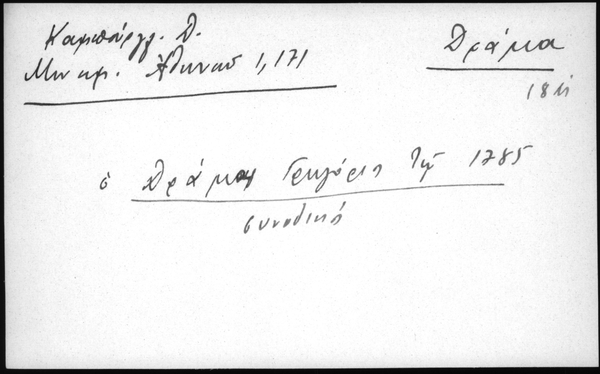 Καμπούρογλ. Δ.
Μνημ. Ἀθηνῶν 1, 171
Δράμα
18
ὁ Δράμας Γρηγόριος τῷ 1785
συνοδικός